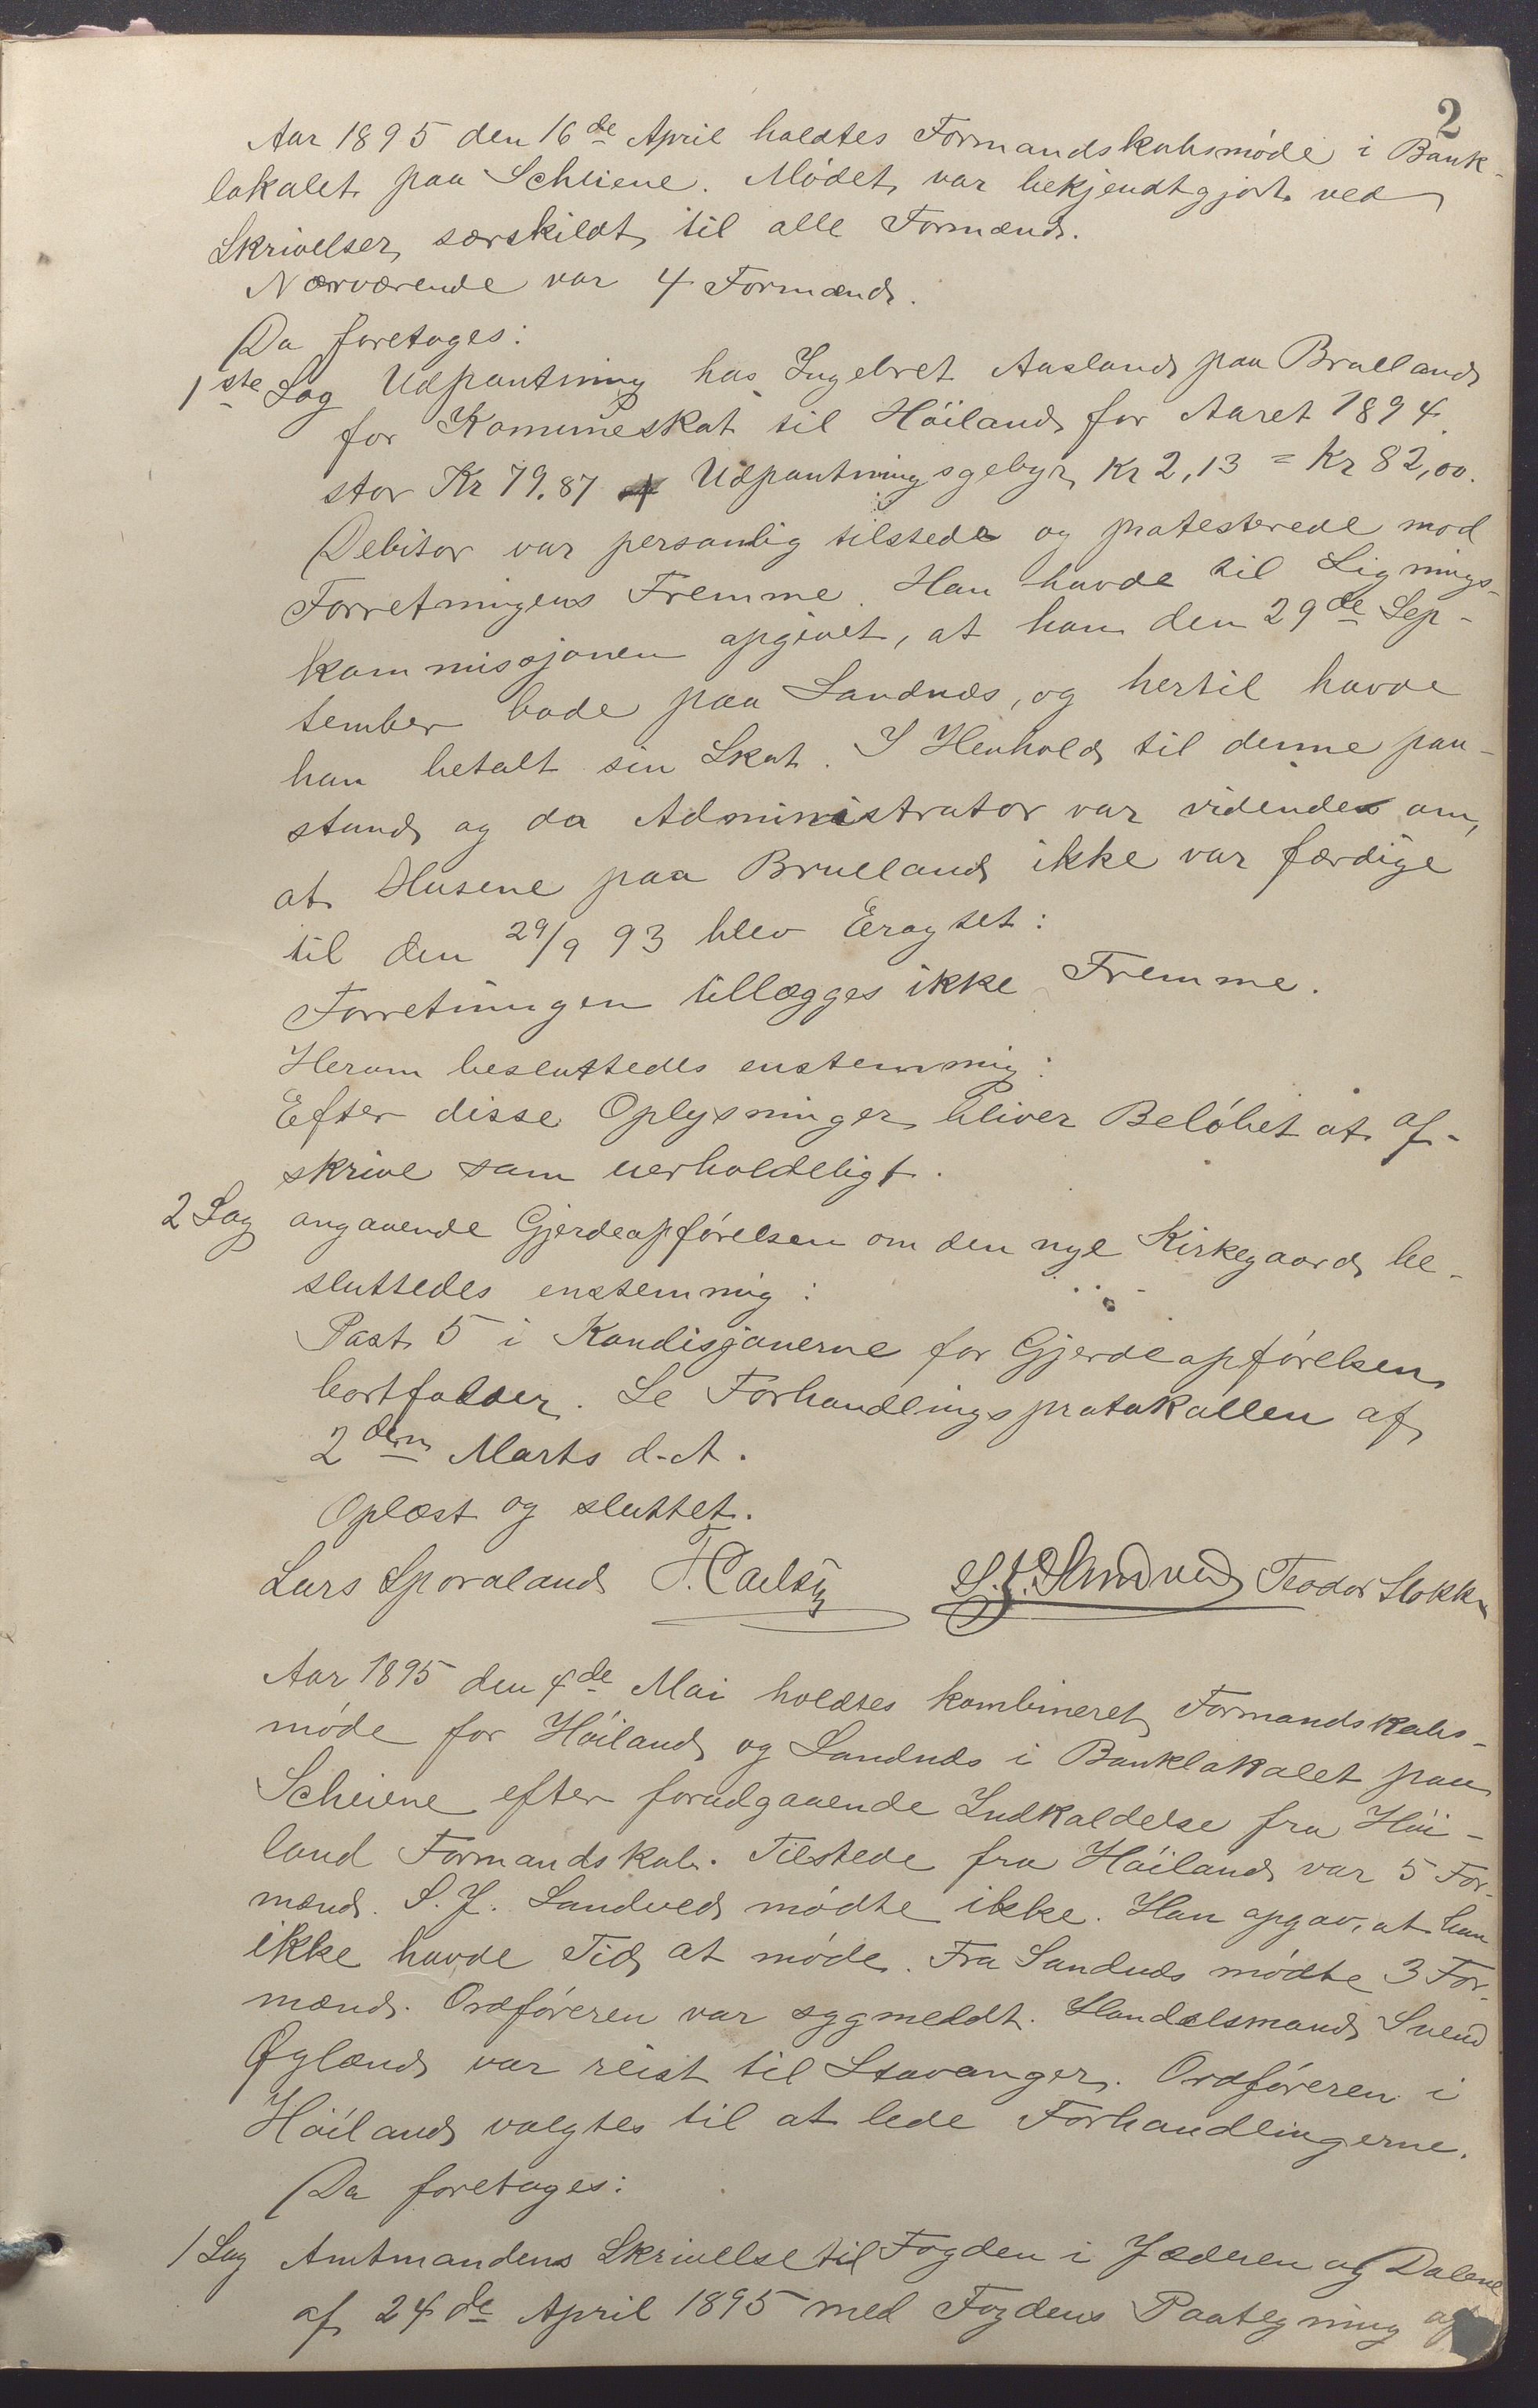 2
Aar 1895 den 16de April holdtes Formandskabsmøde i Bank-
lokalet paa Scheiene. Mødet var bekjendtgjort ved
Skrivelser særskildt til alle Formænd.
Nærværende var 4 Formænd.
Da foretoges:
1ste Sag Udpantning hos Ingebret Aasland paa Brualand
for Kommuneskat til Höiland for Aaret 1894
stor Kr 79.87 + Udpantningsgebyr Kr 2,13 = Kr 82,00.
Debitor var personlig tilstede og protesterede mod
Forretningens Fremme. Han havde til Lignings-
kommissjonen opgivet, at han den 29de Sep-
tember bode paa Sandnes, og hertil havde
han betalt sin Skat. I Henhold til denne paa-
stand og da Administrator var vidende om,
at Husene paa Brualand ikke var færdige
til den 29/9 93 blev Eragtet:
Forretningen tillægges ikke Fremme.
Herom besluttedes enstemmig:
Efter disse Oplysninger bliver Beløbet at af-
skrive som uerholdeligt.
2 Sag angaaende Gjerdeopførelsen om den nye Kirkegaard be-
sluttedes enstemmig:
Post 5 i Kondisjonerne for Gjerdeopførelsen
bortfalder. Se Forhandlingsprotokollen af
2den Marts d.A.
Oplæst og sluttet.
Lars Sporaland S. J. Sandved Teodor Stokke
Aar 1895 den 4de Mai holdtes kombineret Formandskabs-
møde for Höiland og Sandnes i Banklokalet paa
Scheiene efter forudgaaende Indkaldelse fra Höi-
land Formandskab. Tilstede fra Höiland var 5 For-
mænd. S. J. Sandved mødte ikke. Han opgav, at han
ikke havde Tid at møde. Fra Sandnes mødte 3 For-
mænd. Ordføreren var sygmeldt. Handelsmand Svend
Øglænd var reist til Stavanger. Ordføreren i
Höiland valgtes til at lede Forhandlingerne.
Da foretoges:
1 Sag Amtmandens Skrivelse til Fogden i Jæderen og Dalene
af 24de April 1895 med Fogdens Paategning af